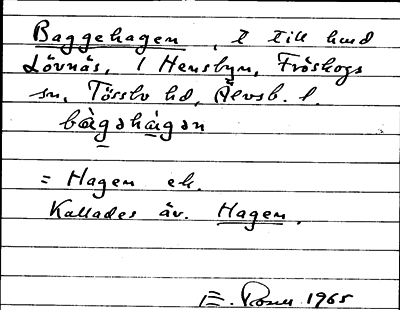 Baggehagen, t till hmd
Lövnäs, 1 Hensbyn, Fröskogs
sn, Tösslv hd, Älvsb. l.
bàgəhàgən
= Hagen ek.
Kallades äv. Hagen.
E. Rosen 1965